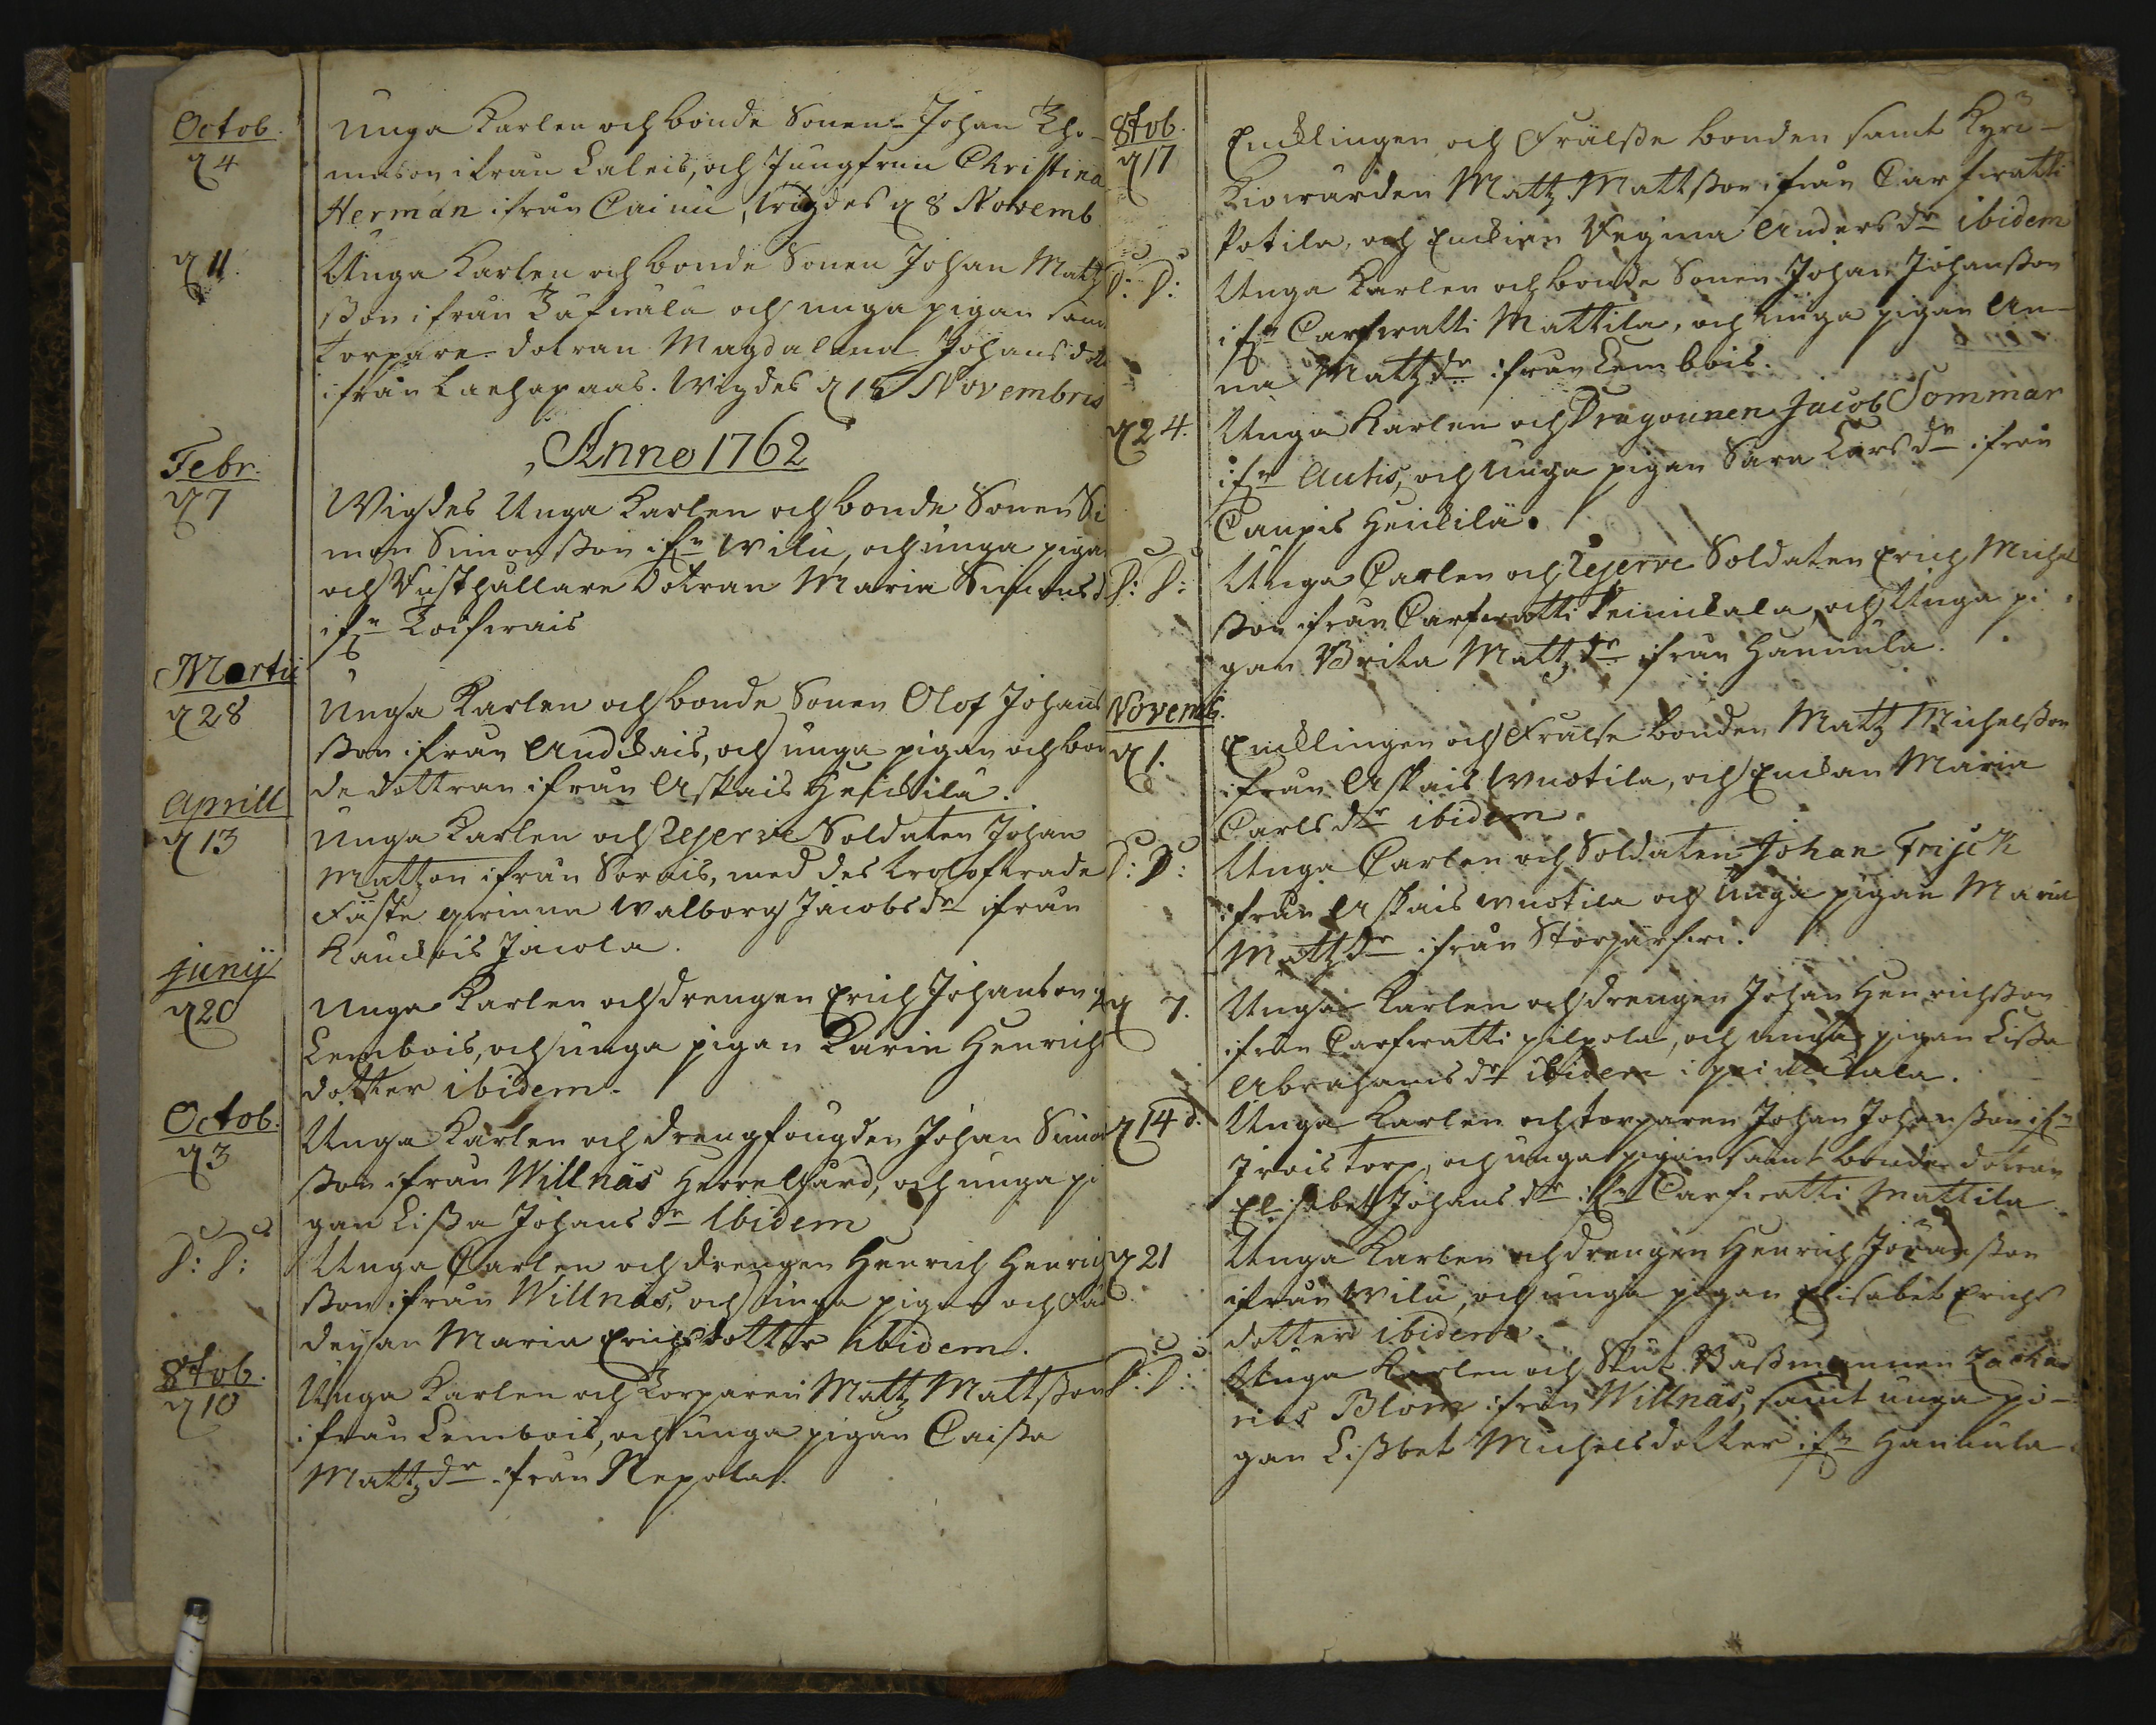 Octob.
d 4
Unga Karlen och bonde Sonen Johan Tho-
mason ifrån Laleis, och Jungfrun Christina
Herman ifrån Cainu, wigdes d 8 Novemb
d 11.
Unga Karlen och bonde Sonen Johan Matz
sson ifrån och unga pigan samt
torpare dotran Magdalena Johans dotr
ifrån Laehapaas. Wigdes d 15 Novembris
Anno 1762
Febr.
d 7
Wigdes Unga Karlen och bonde Sonen Si
mon Simonsson ifn Wilu, och unga piga
och Rusthållare Dotran Maria Simons d
ifn Toifwais
Martii
d 28
Unga Karlen och bonde Sonen Olof Johans
sson ifrån Audkais, och unga pigan och bon
de dottran ifrån Askais Heikilä.
Aprill
d 13
Unga Karlen och Reserve Soldaten Johan
Matzon ifrån Sorais, med des trolofwade
Fäste qvinna Walborg Jacobs dr ifrån
Kaukois Jacola.
Junij
d 20
Unga Karlen och drengen Erich Johanson
Lembois, och unga pigan Karin Henrichs
dotter ibidem.
Octob.
d 3
Unga Karlen och drengfougden Johan Simon
sson ifrån Willnäs Herregård, och unga pi
gan Lissa Johans dr Ibidem
D: D:
Unga Carlen och drengen Henrich Henrich
sson ifrån Willnäs, och unga pigan och Fä
deijan Maria Erichsdotter ibidem.
8tob.
d 10
Unga Karlen och Torparen Matz Mattsson
ifrån Lembois, och unga pigan Caissa
Matz dr ifrån Repola.
8tob.
d 17
Encklingen och Frälsse bonden samt Kyrc-
kiowärden Matz Mattsson ifrån Carfwatti
Potila, och Enckian Regina Anders dr ibidem
D: D:
Unga Karlen och bonde Sonen Johan Johansson
ifn Carfwatti Mattila, och unga pigan An-
na Matz dr ifrån Lembois.
d 24.
Unga Karlen och Dragounen Jacob Sommar
ifn Autis, och Unga pigan Sara Lars dr ifrån
Caupis Heickilä.
D: D:
Unga Carlen och Reserve Soldaten Erich Michel
sson ifrån Carfwatti Peinickala, och Unga pi
gan Brita Matz dr ifrån Hannula.
Novemb.
d 1.
Encklingen och Frälse bonden Matz Michelsson
ifrån Askais Wuotila, och Enckan Maria
Carls dtr ibidem.
D: D:
Unga Carlen och Soldaten Johan Frisck
ifrån Askais Wuotila och Unga pigan Maria
Matz dr ifrån Storjärfwi.
d 7.
Unga Karlen och drengen Johan Henrichsson
ifrån Carfwatti pilpola, och unga pigan Lissa
Abrahams dr ibidem i peinickala.
d 14 d.
Unga Karlen och torparen Johan Johansson ifn
Irois torp, och unga pigan samt bonde dotran
Elisabet Johans dtr ifn Carfwatti Mattila.
d 21
Unga Karlen och drengen Henrich Jöransson
ifrån Wilu, och unga pigan Elisabet Erichs
dotter ibidem.
D: D:
Unga Karlen och Skut. Båssmannen Zacha
rias Blom ifrån Willnäs, samt unga pi-
gan Lissbet Michelsdotter ifn Hannula.